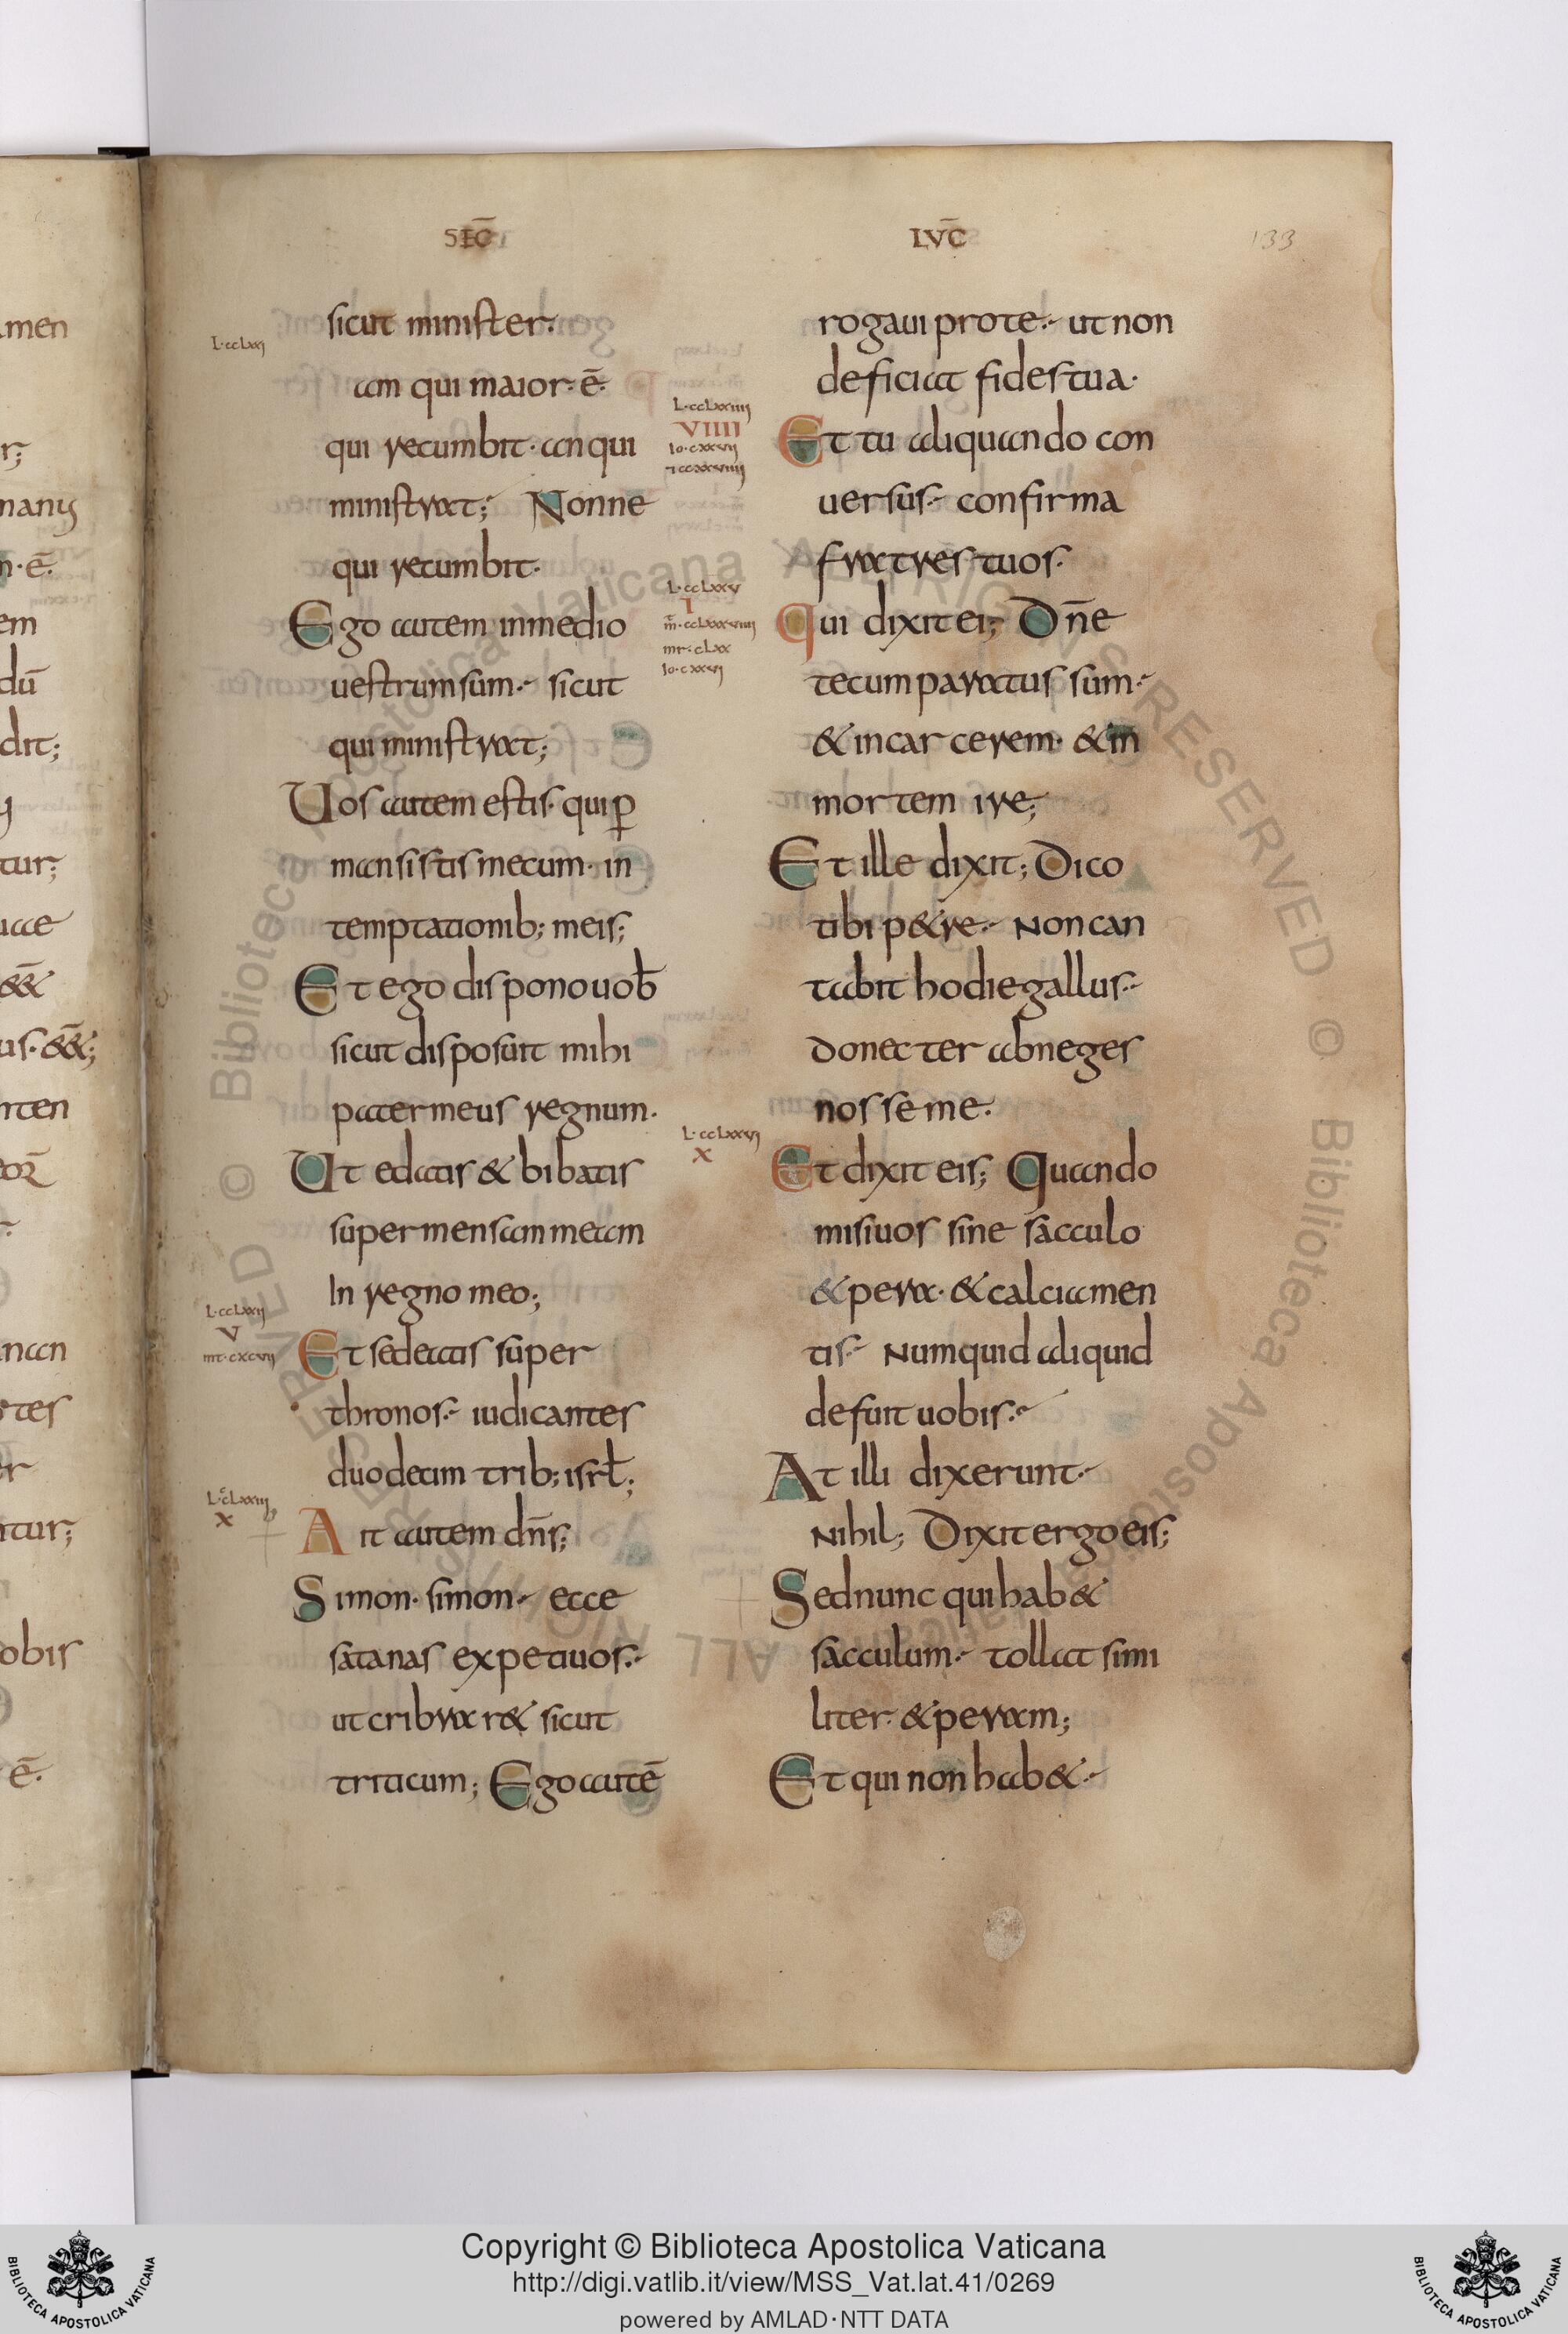 SEC̄
LVC̄
133
sicut minister.
L·cclxxi
am qui maior·ē·
qui recumbit· an qui
ministrat; Nonne
qui recumbit·
Ego autem inmedio
uestrum sum·- sicut
qui ministrat;
Uos autem estis· qui ꝑ
mansistis mecum· in
temptationib; meis;
Et ego dispono uob̄
sicut disposuit mihi
pater meus regnum·
Ut edatis & bibatis
super mensam meam
In regno meo;
L·cclxxij
V
mt·cxcvij
Et sedeatis super
thronos·- iudicantes
duodecim trib; isrł;
L·cclxxiij
X
Ait autem dn̄s;
Simon· simon·- ecce
satanas expetiuos·-
ut cribrar& sicut
triticum; Ego autē
rogaui pro te·- ut non
deficiat fides tua·
L·cclxxiiij
VIIII
Io·cxxvij
Et tu aliquando con
uersus·- confirma
fratres tuos·
L·cclxxv
I
mr·clxx
Io·cxxvj
Qui dixit ei; Dn̄e
tecum paratus sum·-
& in carcerem· & in
mortem ire;
Et ille dixit; Dico
tibi p&re·- Non can
tabit hodie gallus·-
donec ter abneges
nosse me·
L·cclxxvj
X
Et dixit eis; Quando
misi uos sine sacculo
& pera· & calciamen
tis·- Numquid aliquid
defuit uobis·-
At illi dixerunt·-
Nihil; Dixit ergo eis;
Sed nunc qui hab&
sacculum·- tollat simi
liter· & peram;
Et qui non hab&·-
Copyright © Biblioteca Apostolica Vaticana
http://digi.vatlib.it/view/MSS_Vat.lat.41/0269
powered by AMLAD·NTT DATA
BIBLIOTECA APOSTOLICA VATICANA
BIBLIOTECA APOSTOLICA VATICANA